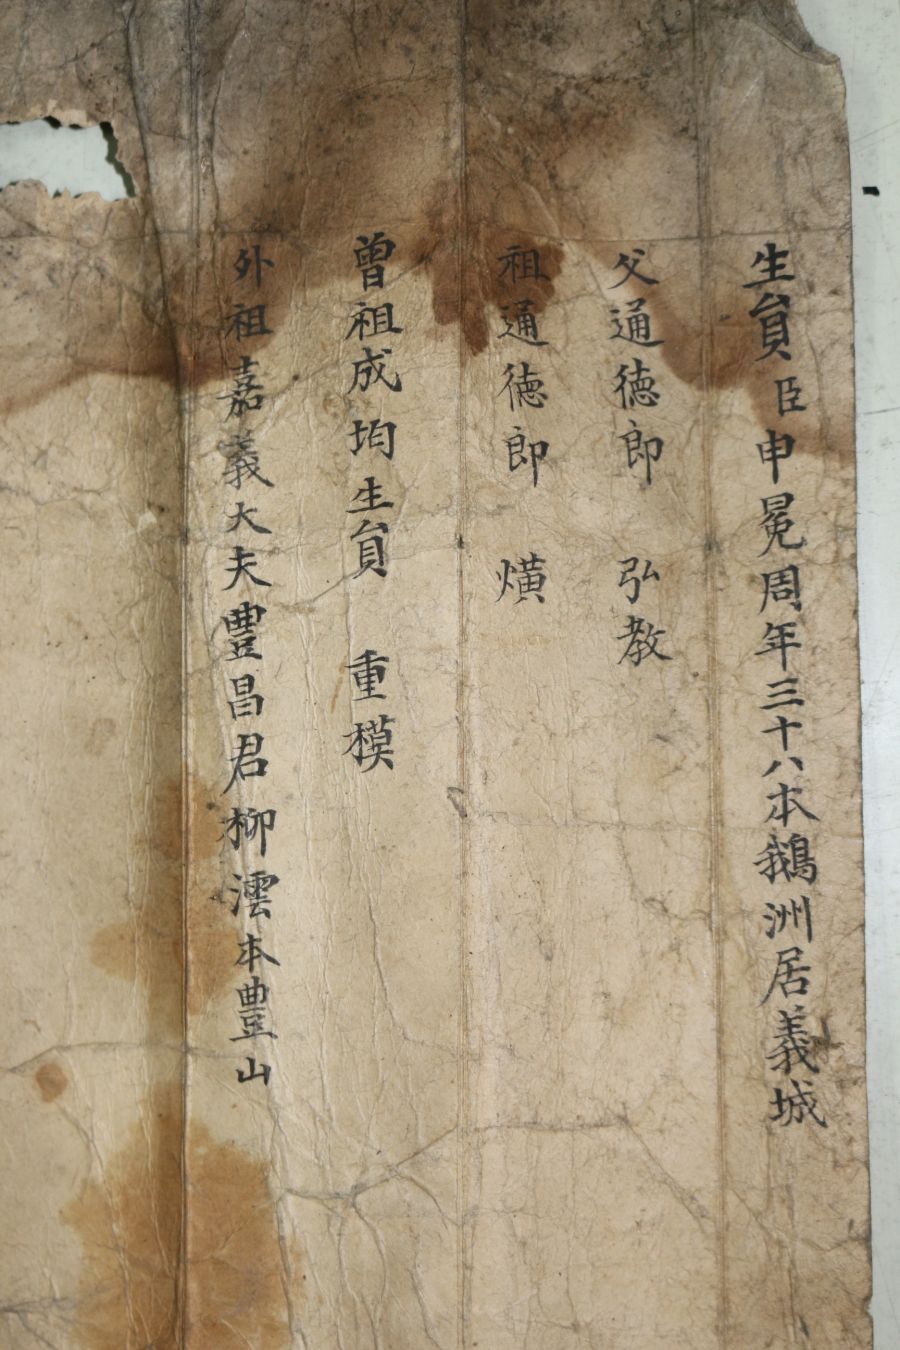 生員臣申冕周年三十八本鵝洲居義城
父通德郎 弘敎
祖通德郎 熿
曾祖成均生員 重模
外祖嘉義大夫豊昌君柳澐本豊山